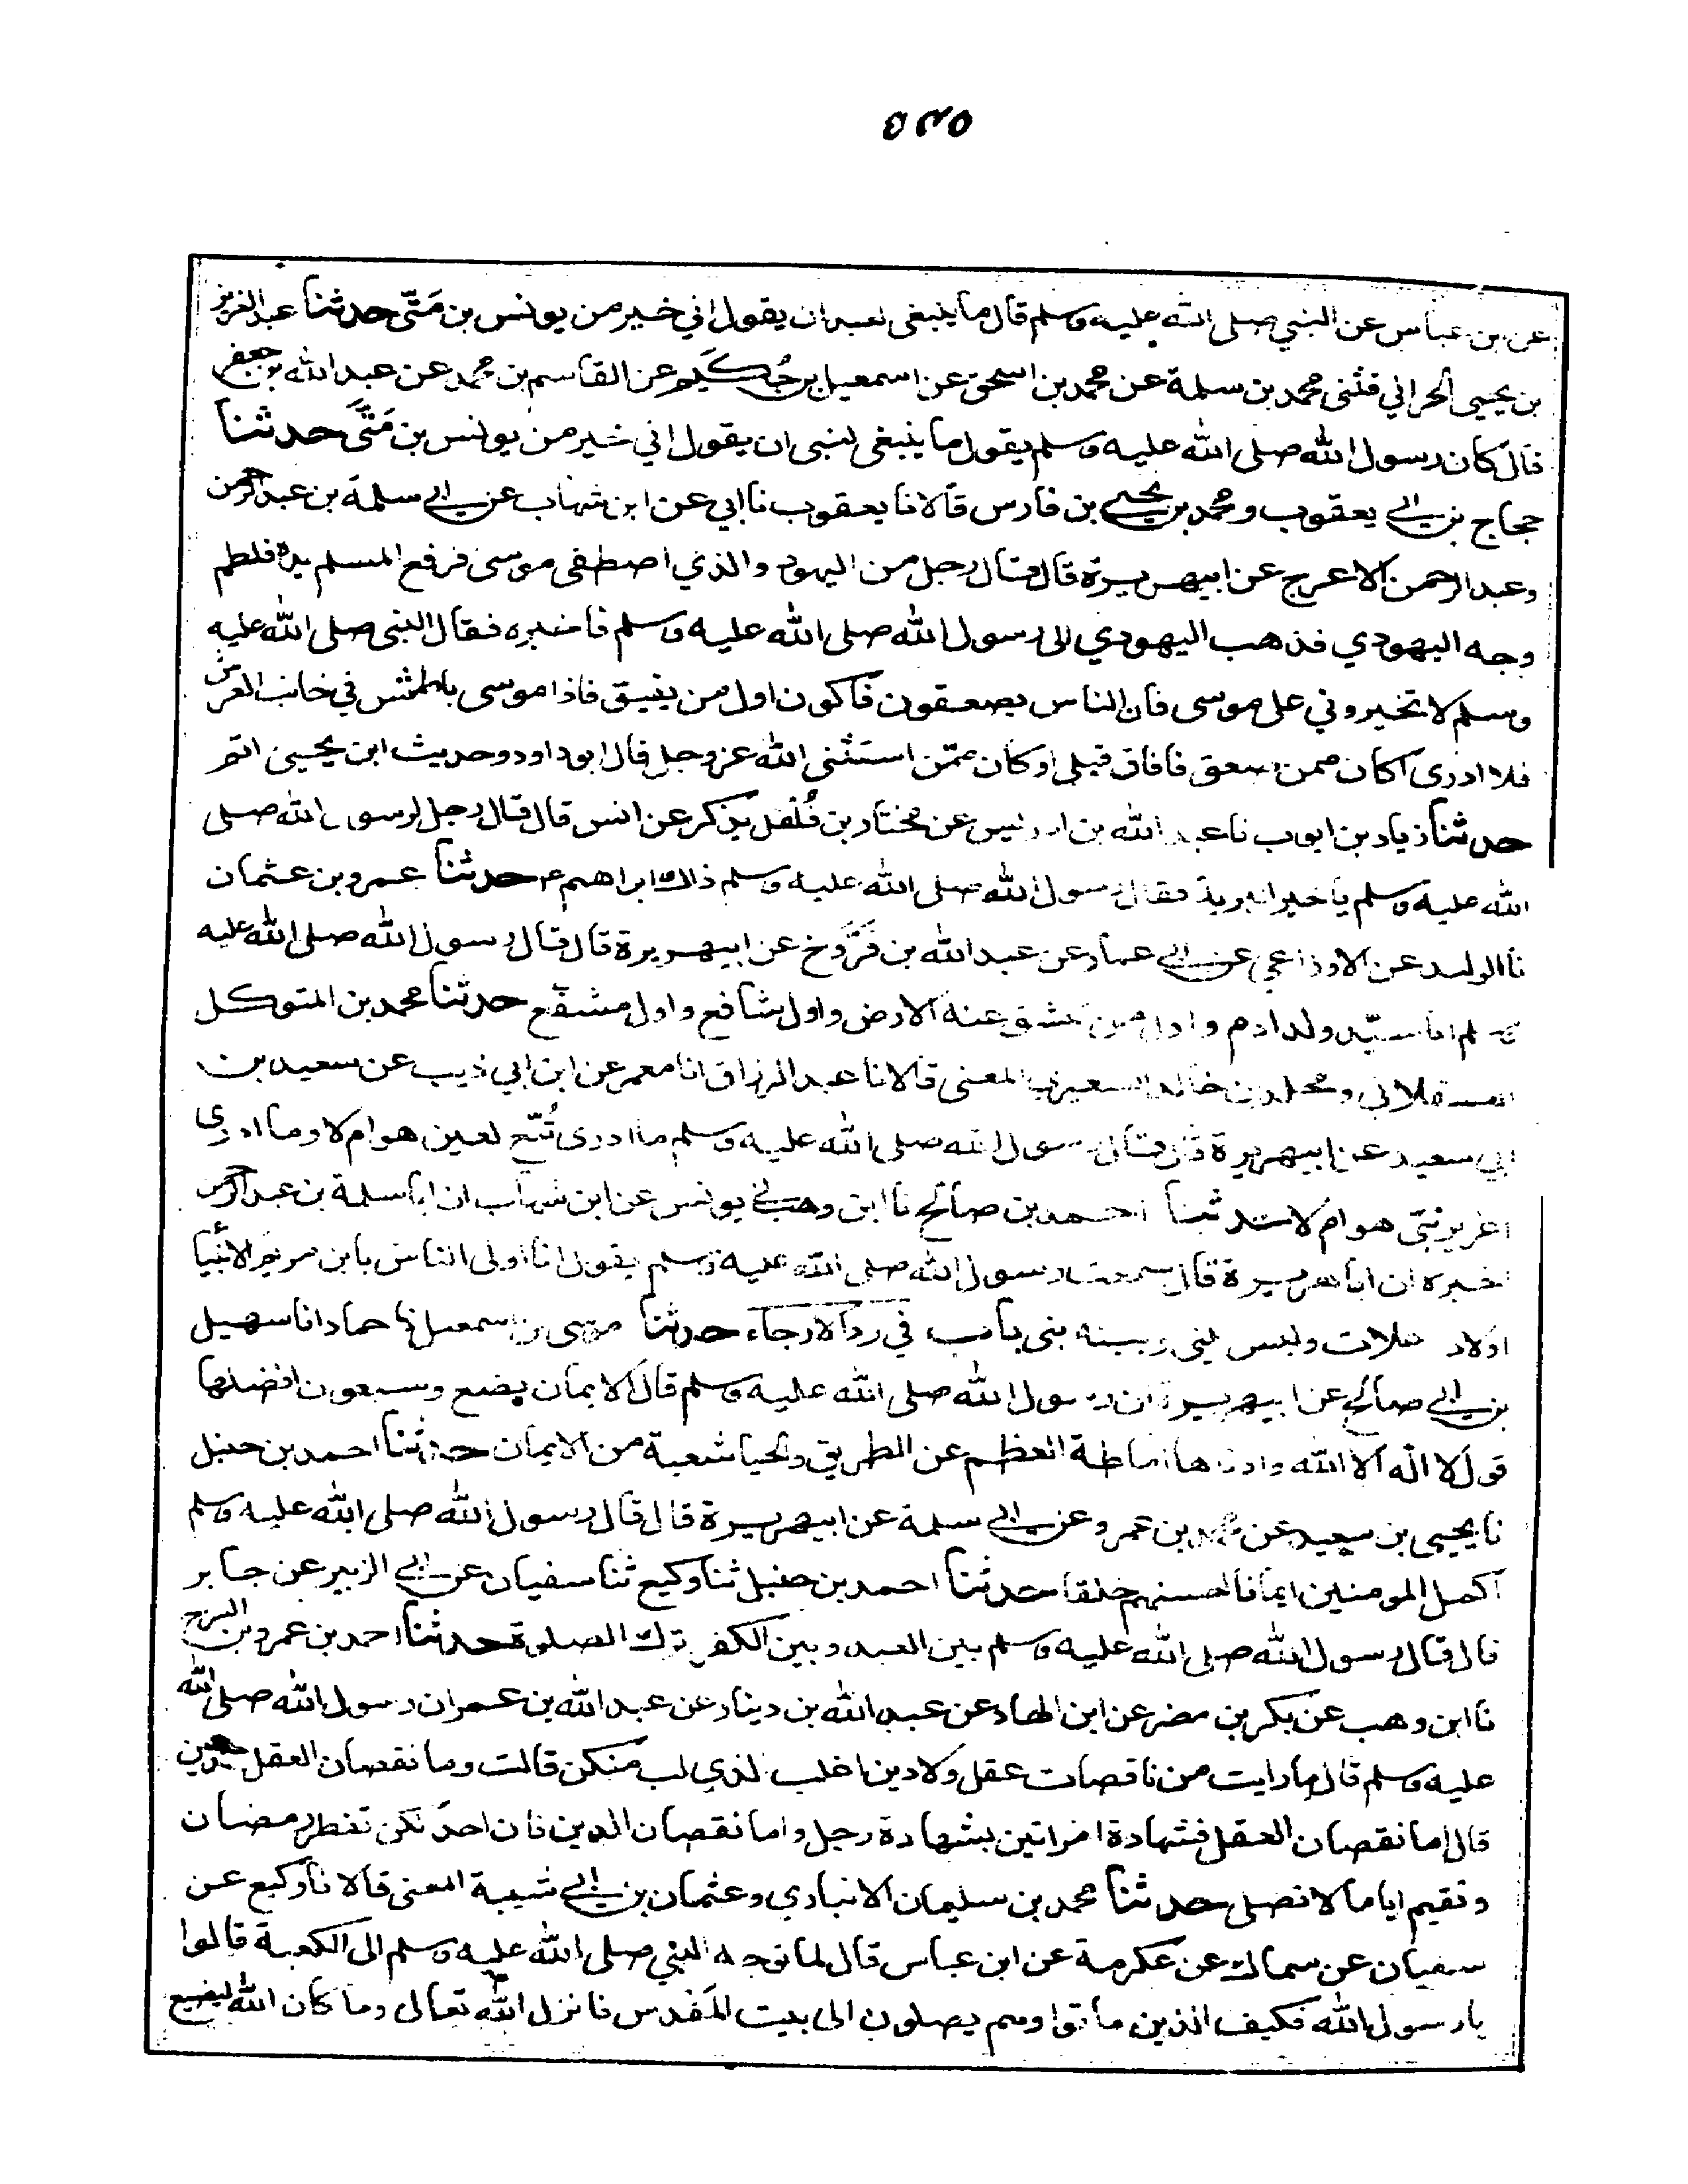 ٥٤٥
عن بن عباس عن النبي صلى الله عليه وسلم قال ما ينبغى لعبد ان يقول اني خير من يونس بن مَتّى حدثنا عبد العزيز
بن يحيى الحراني قثنى محمد بن سلمة عن محمد بن اسحق عن اسمعيل بن حُكَيم عن القاسم بن محمد عن عبد الله بن جعفر
قال كان رسول الله صلى الله عليه وسلم يقول ما ينبغى لنبى ان يقول اني خير من يونس بن مَتَّى حدثنا
حجاج بن ابي يعقوب ومحمد بن يحيى بن فارس قالا نا يعقوب نا ابي عن ابن شهاب عن ابي سلمة بن عبد الرحمن
وعبد الرحمن الاعرج عن ابيهريرة قال قال رجل من اليهود والذي اصطفى موسى فرفع المسلم يده فلطم
وجه اليهودي فذهب اليهودي الى رسول الله صلى الله عليه وسلم فاخبره فقال النبى صلى الله عليه
وسلم لا تخيروني على موسى فان الناس يصعقون فاكون اول من يفيق فاذا موسى باطش في جانب العرش
فلا ادرى اكان ممن صعق فافاق قبلى او كان ممّن استثنى الله عز وجل قال ابو داود وحديث ابن يحيى اتم
حدثنا زياد بن ايوب نا عبد الله بن ادريس عن مختار بن فُلفل يذكر عن انس قال قال رجل لرسول الله صلى
الله عليه وسلم يا خير البرية فقال رسول الله صلى الله عليه وسلم ذاك ابراهيم حدثنا عمرو بن عثمان
نا الوليد عن الاوزاعي عن ابي عمار عن عبد الله بن فَرَّوخ عن ابيهريرة قال قال رسول الله صلى الله عليه
وسلم انا سيّد ولد ادم واول من تنشق عنه الارض واول شافع واول مشفّع حدثنا محمد بن المتوكل
العسقلاني ومخلد بن خالد الشعيري المعنى قالا نا عبد الرزاق انا معمر عن ابن ابي ذيب عن سعيد بن
ابي سعيد عن ابيهريرة قال قال رسول الله صلى الله عليه وسلم ما ادرى تُبّع لعين هو ام لا وما ادرى
اعزير نبّى هو ام لا حدثنا احمد بن صالح نا ابن وهب يونس عن ابن شهاب ان ابا سلمة بن عبد الرحمن
اخبره ان ابا هريرة قال سمعت رسول الله صلى الله عليه وسلم يقول انا اولى الناس بابن مريم الانبيا
اولاد علات وليس بينى وبينه نبى باب في رد الارجاء حدثنا موسى بن اسمعيل نا حماد انا سهيل
بن ابي صالح عن ابيهريرة ان رسول الله صلى الله عليه وسلم قال الايمان بضع وسبعون افضلها
قول لا اله الا الله وادناها اماطة العظم عن الطريق والحيا شعبة من الايمان حدثنا احمد بن حنبل
نا يحيى بن سعيد عن محمد بن عمرو عن ابي سلمة عن ابيهريرة قال قال رسول الله صلى الله عليه وسلم
اكمل المومنين ايمانا احسنهم خلقا حدثنا احمد بن حنبل ثنا وكيع ثنا سفيان عن ابي الزبير عن جابر
قال قال رسول الله صلى الله عليه وسلم بين العبد وبين الكفر ترك الصلوة حدثنا احمد بن عمرو بن السرح
نا ابن وهب عن بكر بن مضر عن ابن الهاد عن عبد الله بن دينار عن عبد الله بن عمر ان رسول الله صلى الله
عليه وسلم قال ما رايت من ناقصات عقل ولا دين اغلب لذي لب منكن قالت وما نقصان العقل والدين
قال اما نقصان العقل فشهادة امراتين بشهادة رجل واما نقصان الدين فان احدىكن تفطر رمضان
وتقيم اياما لا تصلى حدثنا محمد بن سليمان الانباري وعثمان بن ابي شيبة المعنى قالا نا وكيع عن
سفيان عن سماك عن عكرمة عن ابن عباس قال لما توجه النبي صلى الله عليه وسلم الى الكعبة قالوا
يا رسول الله فكيف الذين ماتوا وهم يصلون الى بيت المقدس فانزل الله تعالى وما كان الله ليضيع